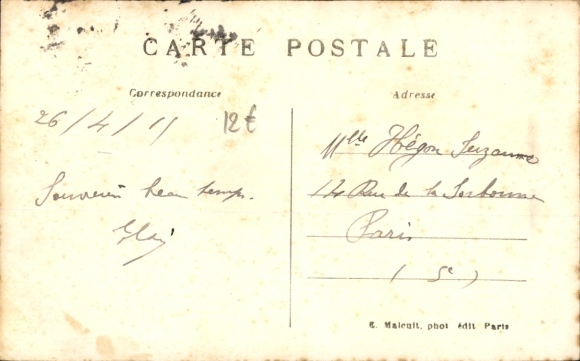 CARTE POSTALE
Correspondance
Adresse
26/4/11
12€
Souvenir beau temps.
Mlle Hégon Suzanne
12 Rue de la Sorbonne
Paris
(5e)
E. Malcuit, phot édit Paris